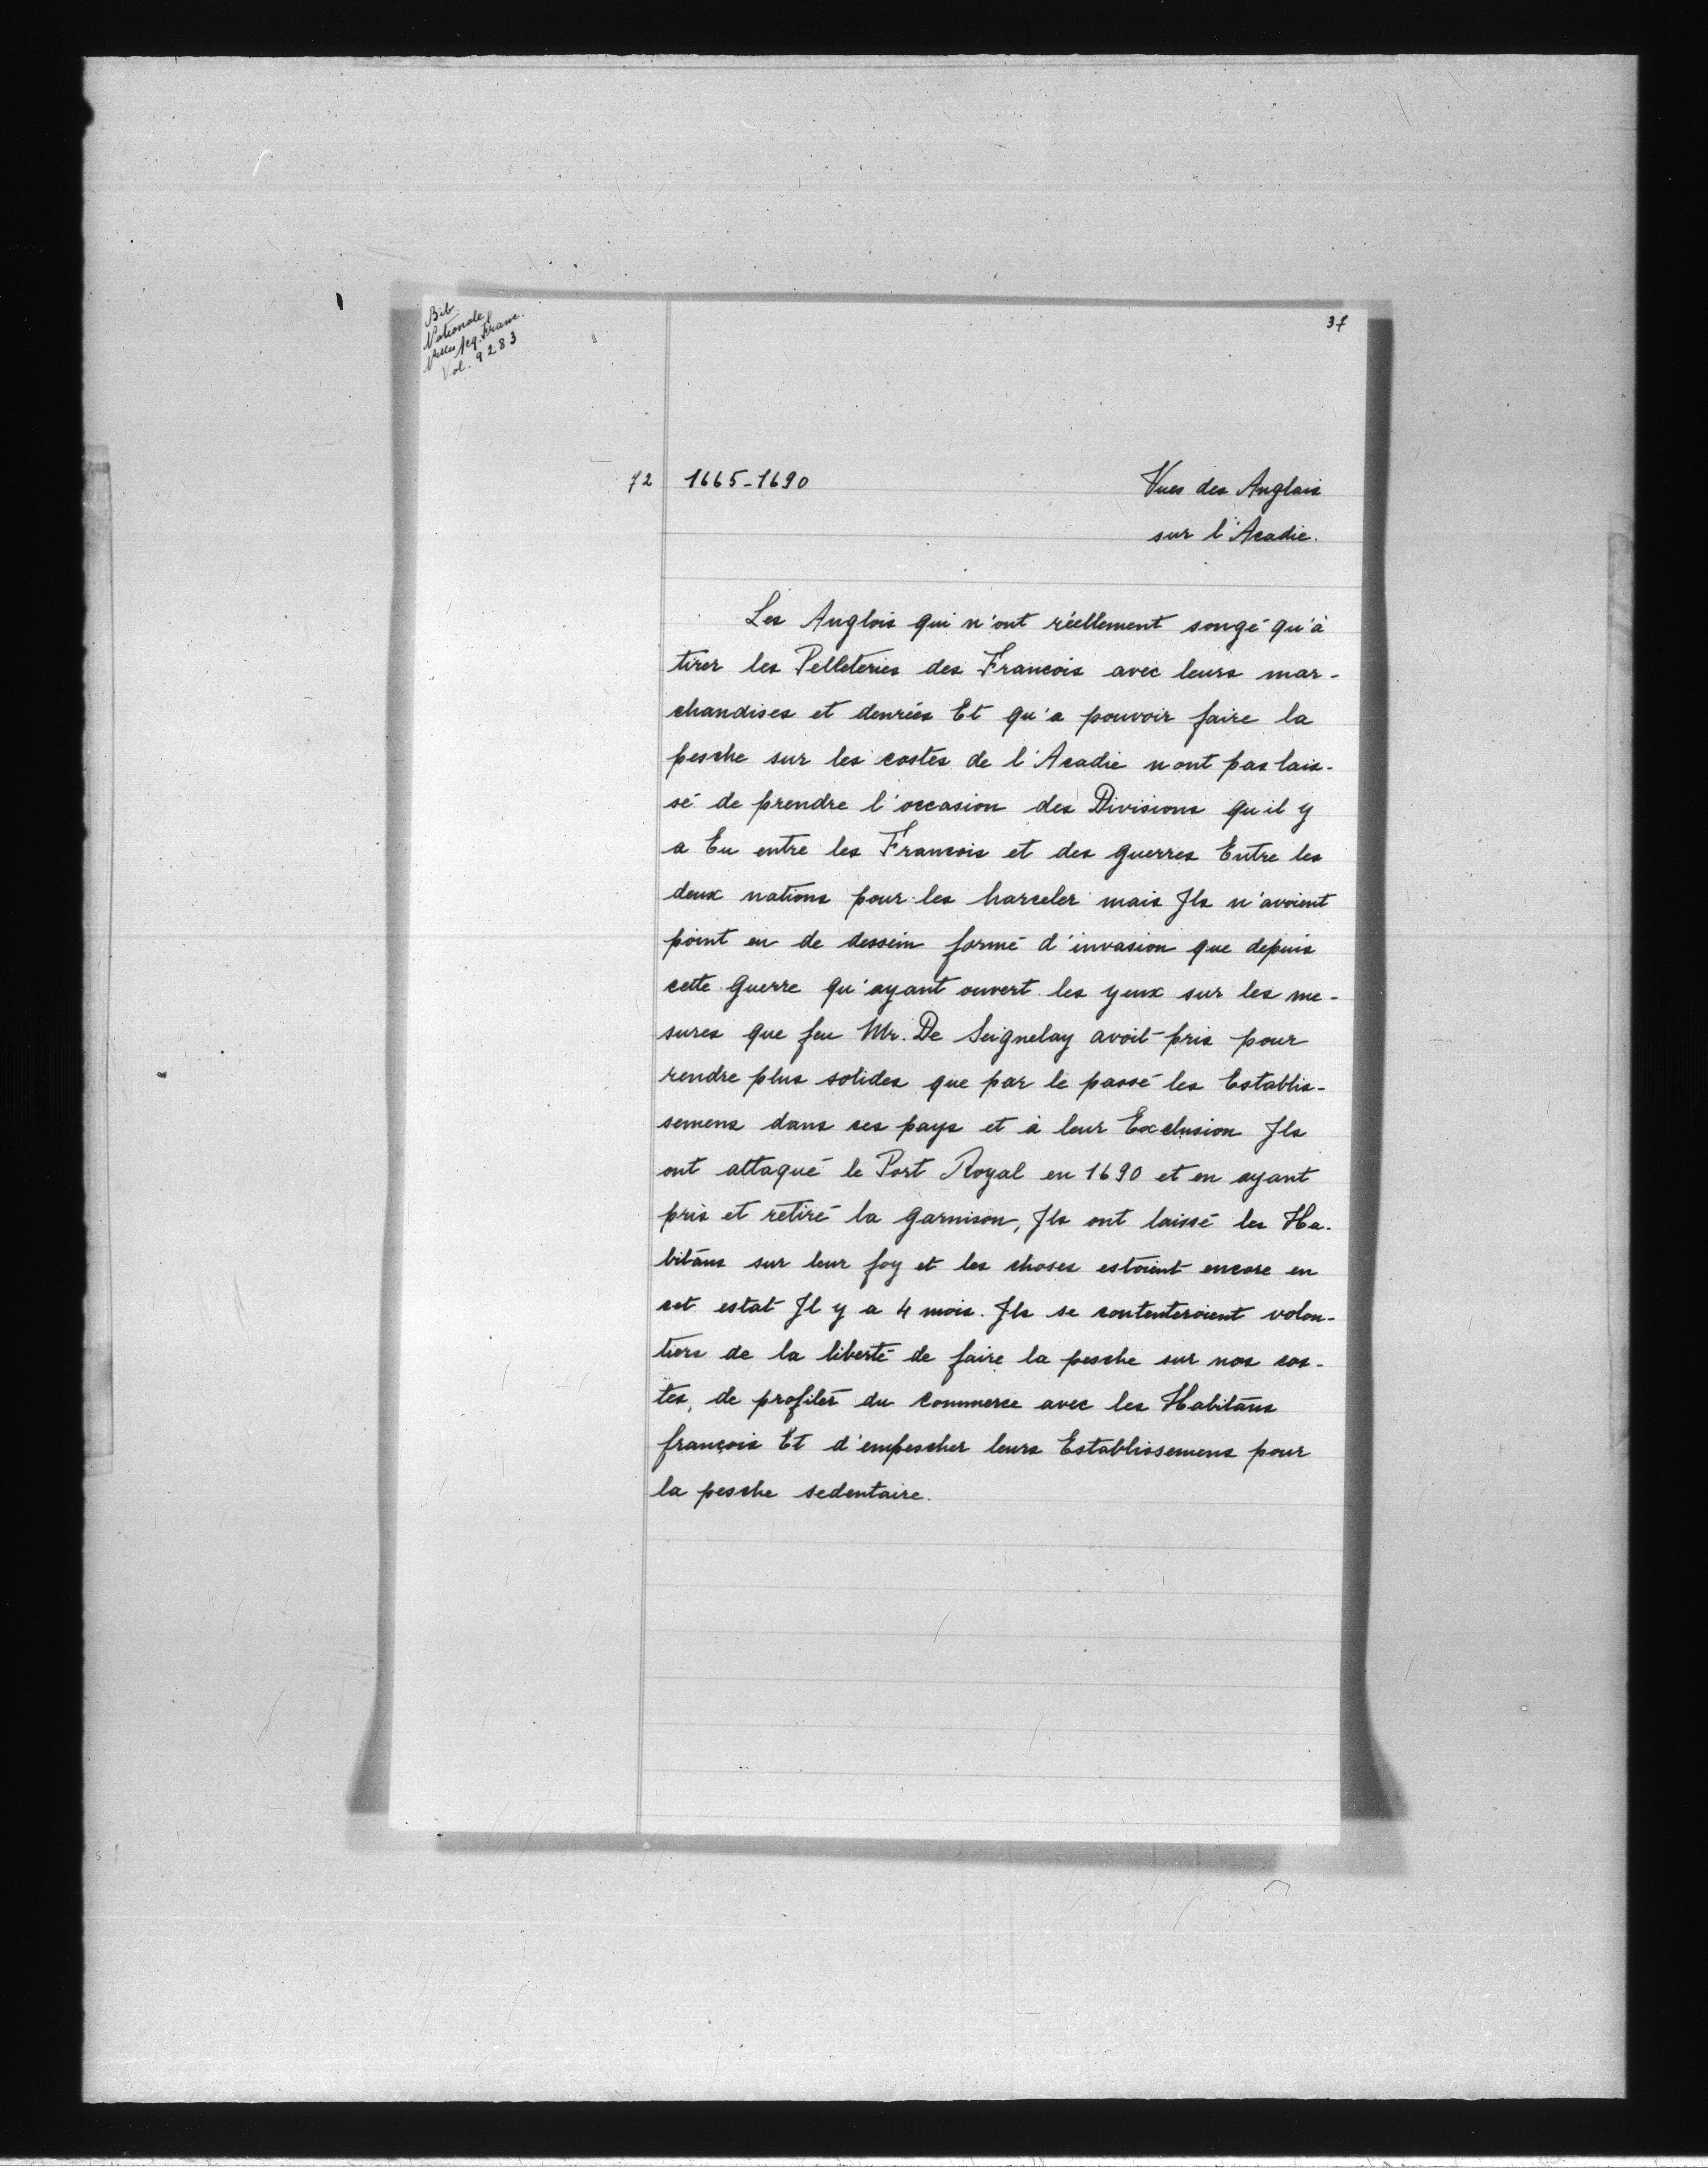 Bib.
Nationale
Nelles Acq. Franc.
Vol. 9283
37
72 1665-1690 Vues des Anglais
sur l'Acadie.
Les Anglois qui n'ont réellement songé qu'à
tirer les Pelleteries des Francois avec leurs mar-
chandises et denrées Et qu'a pouvoir faire la
pesche sur les costes de l'Acadie n'ont pas lais-
sé de prendre l'occasion des Divisions qu'il y
a Eu entre les Francois et des guerres Entre les
deux nations pour les harceler mais Ils n'avoient
point eu de dessein formé d'invasion que depuis
cette guerre qu'ayant ouvert les yeux sur les me-
sures que feu Mr. De Seignelay avoit pris pour
rendre plus solides que par le passé les Establis-
semens dans ces pays et à leur Exclusion Ils
ont attaqué le Port Royal en 1690 et en ayant
pris et retiré la garnison, Ils ont laissé les Ha-
bitans sur leur foy et les choses estoient encore en
cet estat Il y a 4 mois. Ils se contenteroient volon-
tiers de la liberté de faire la pesche sur nos cos-
tes, de profiter du commerce avec les Habitans
françois Et d'empescher leurs Establissemens pour
la pesche sedentaire.